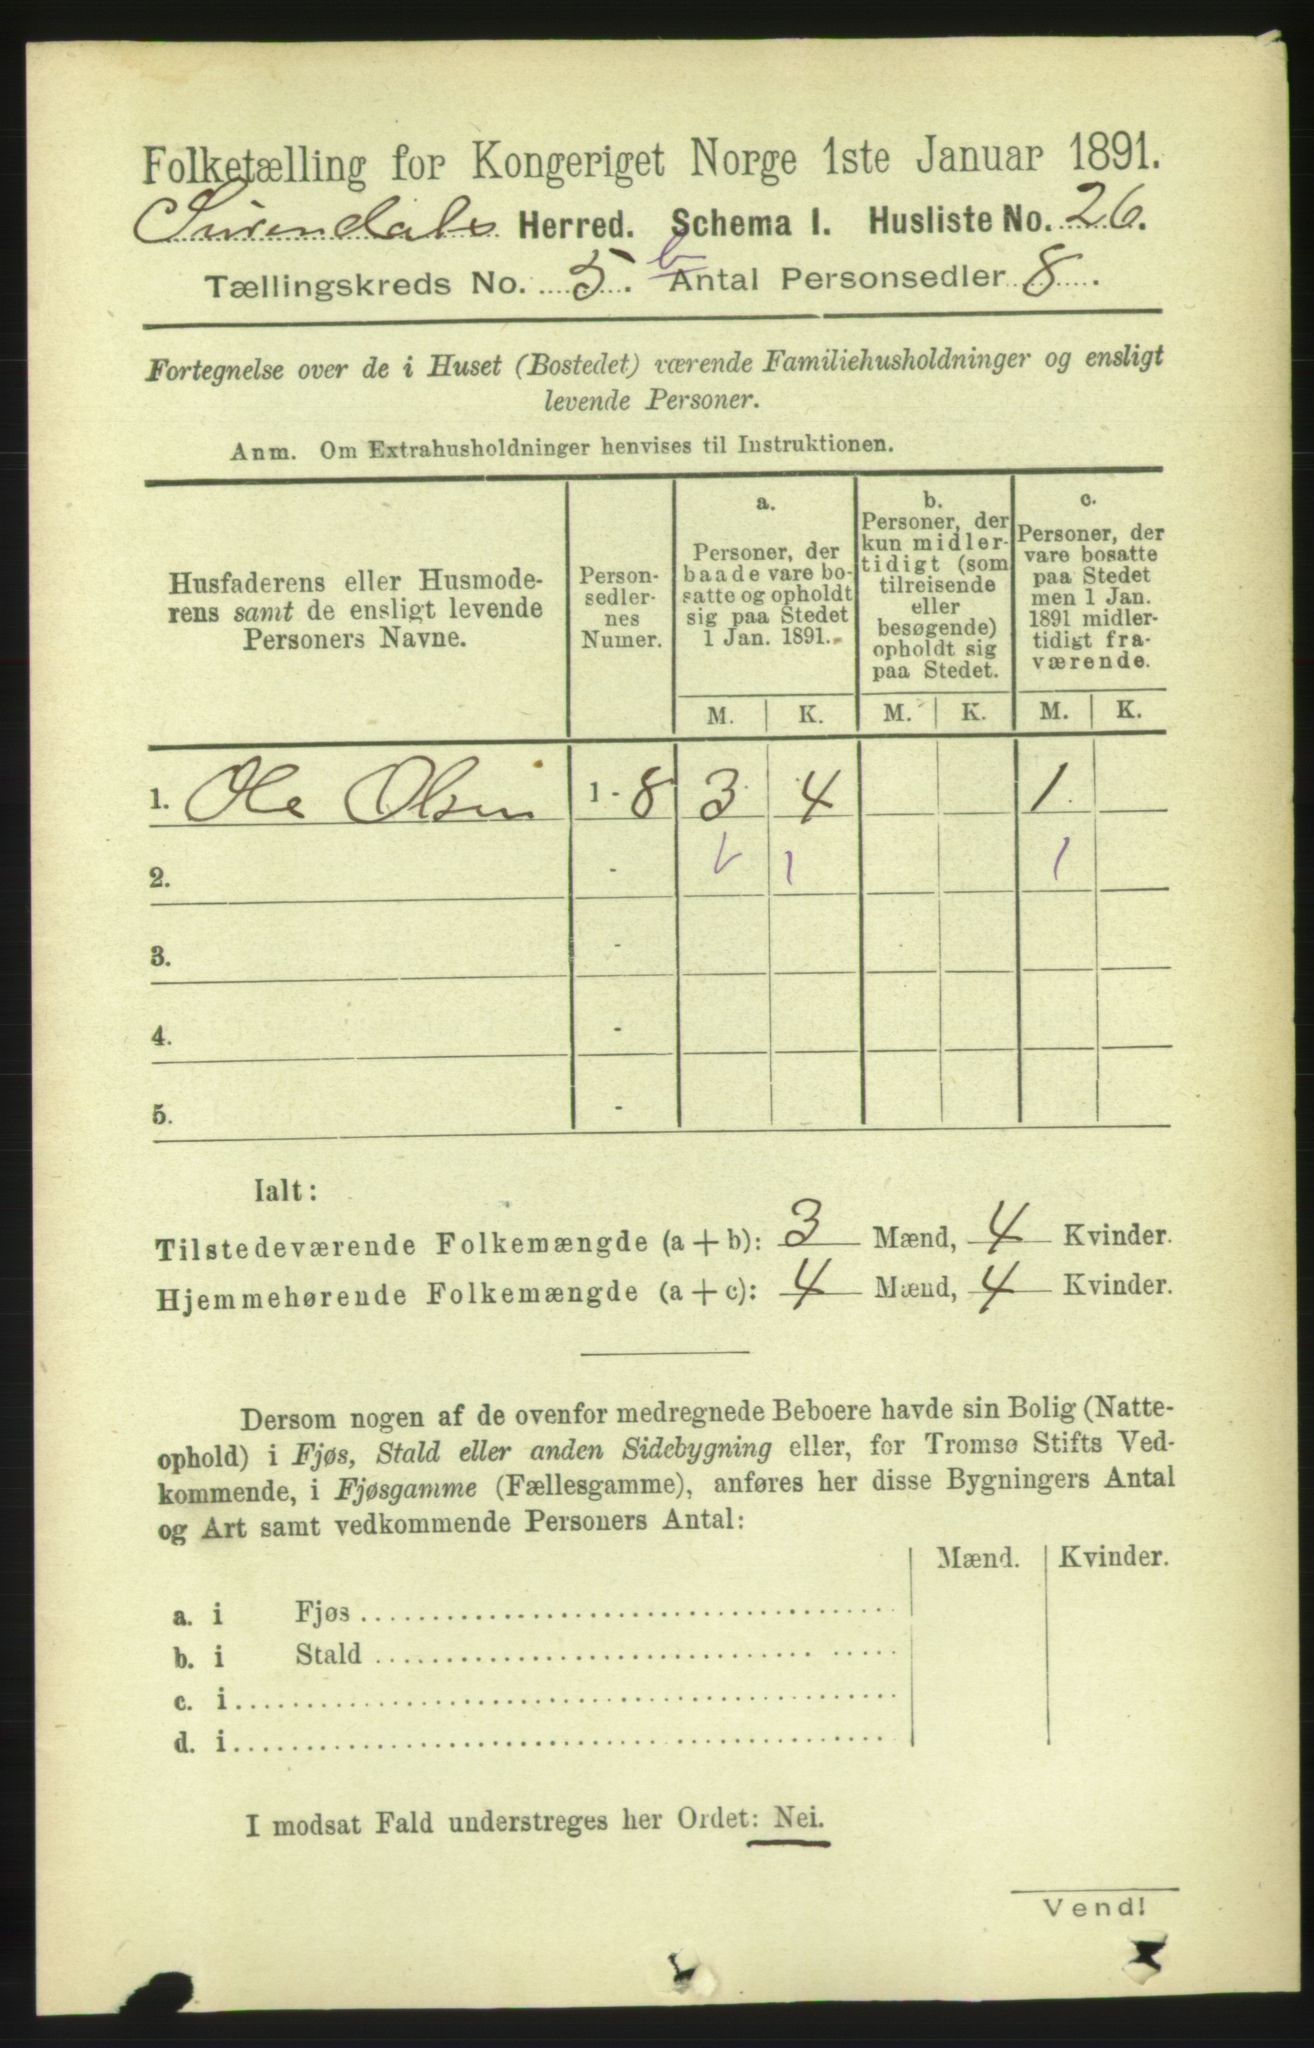 Folketælling for Kongeriget Norge 1ste Januar 1891.
Surendals Herred. Schema I. Husliste No. 26.
Tællingskreds No. 5. b Antal Personsedler 8.
Fortegnelse over de i Huset (Bostedet) værende Familiehusholdninger og ensligt
levende Personer.
Anm. Om Extrahusholdninger henvises til Instruktionen.
Husfaderens eller Husmode-
rens samt de ensligt levende
Personers Navne.
Person-
sedler-
nes
Numer.
a.
Personer, der
baade vare bo-
satte og opholdt
sig paa Stedet
1 Jan. 1891.
b.
Personer, der
kun midler-
tidigt (som
tilreisende
eller
besøgende)
opholdt sig
paa Stedet.
c.
Personer, der
vare bosatte
paa Stedet
men 1 Jan.
1891 midler-
tidigt fra-
værende.
M. K. M. K. M. K.
1. Ole Olsen 1-8 3 4 1
2. - 1 1
3. -
4. -
5. -
Ialt:
Tilstedeværende Folkemængde (a+b): 3 Mænd, 4 Kvinder.
Hjemmehørende Folkemængde (a+c): 4 Mænd, 4 Kvinder.
Dersom nogen af de ovenfor medregnede Beboere havde sin Bolig (Natte-
ophold) i Fjøs, Stald eller anden Sidebygning eller, for Tromsø Stifts Ved-
kommende, i Fjøsgamme (Fællesgamme), anføres her disse Bygningers Antal
og Art samt vedkommende Personers Antal:
Mænd. Kvinder.
a. i Fjøs
b. i Stald
c. i
d. i
I modsat Fald understreges her Ordet: Nei.
Vend!